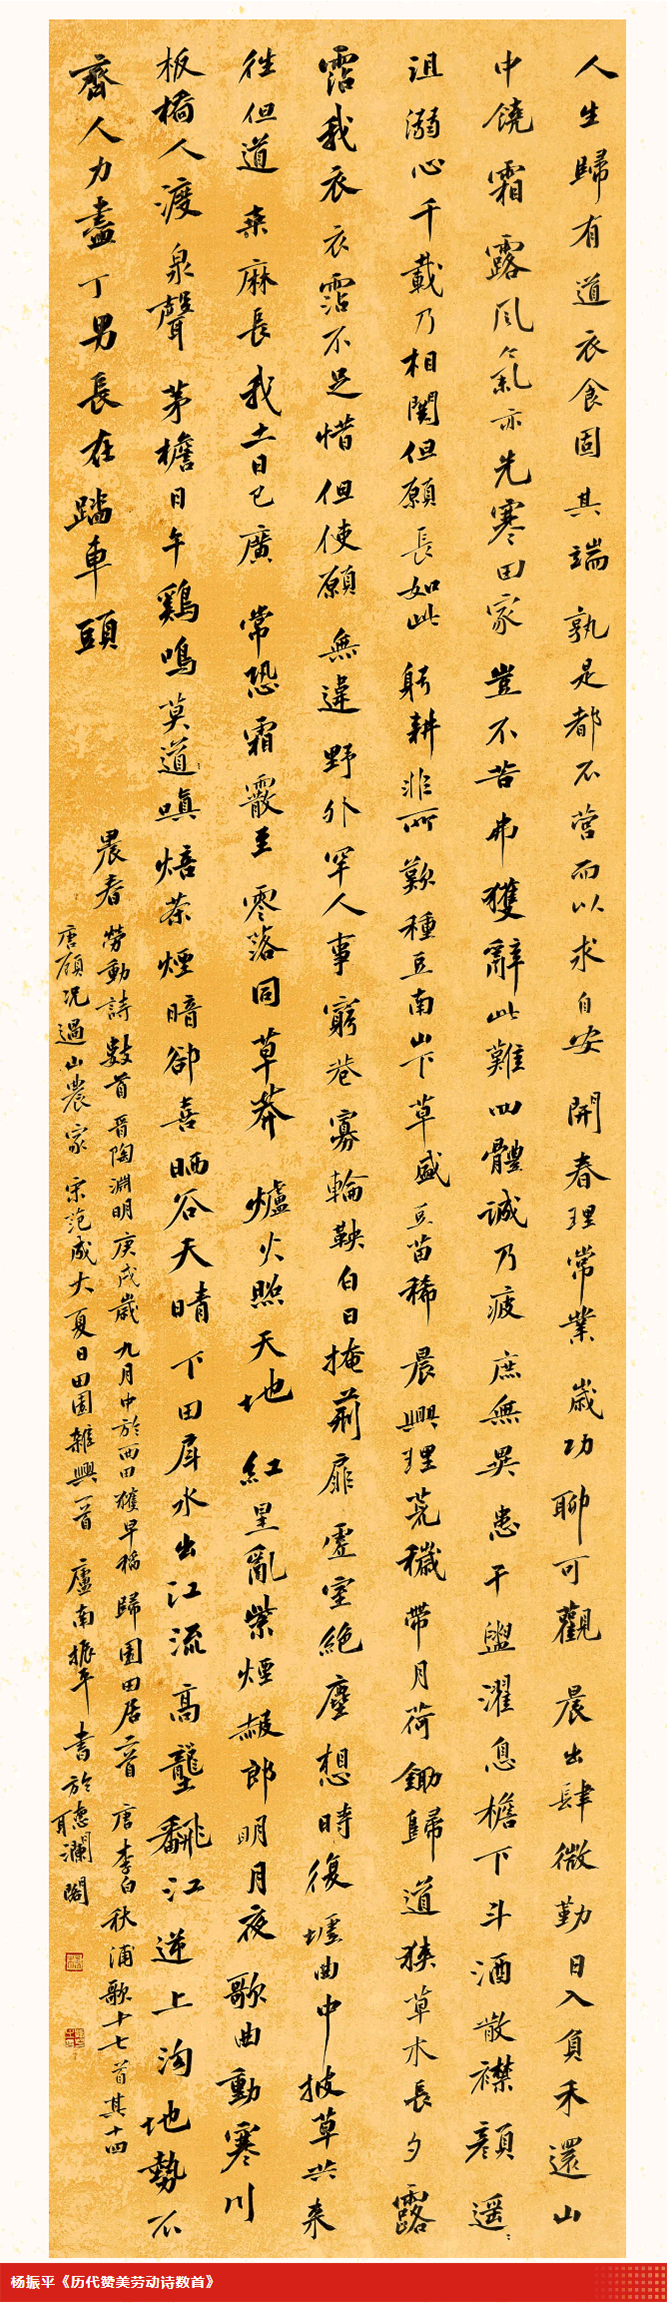 人生歸有道衣食固其端孰是都不營而以求自安開春理常業歲功聊可觀晨出肆微勤日入負禾還山
中饒霜露風氣亦先寒田家豈不苦弗獲辭此難四體誠乃疲庶無異患干盥濯息檐下斗酒散襟顏遥〻
沮溺心千載乃相關但願長如此躬耕非所歎種豆南山下草盛豆苗稀晨興理荒穢帶月荷鋤歸道狹草木長夕露
霑我衣衣霑不足惜但使願無違野外罕人事窮巷寡輪鞅白日掩荊扉虛室絕塵想時復墟曲中披草共来
徃但道桑麻長我土日已廣常恐霜霰至零落同草莽爐火照天地紅星亂紫煙赧郎明月夜歌曲動寒川
板橋人渡泉聲茅檐日午鷄鳴莫道嗔焙茶煙暗卻喜晒谷天晴下田戽水出江流高壟翻江逆上溝地勢不
齊人力盡丁男長在踏車頭
晨春勞動詩數首晉陶淵明庚戌歲九月中於西田獲早稻歸園田居二首唐李白秋浦歌十七首其十四
唐顧况過山農家宋范成大夏日田園雜興一首廬南振平書於聽瀾閣
杨振平《历代赞美劳动诗数首》